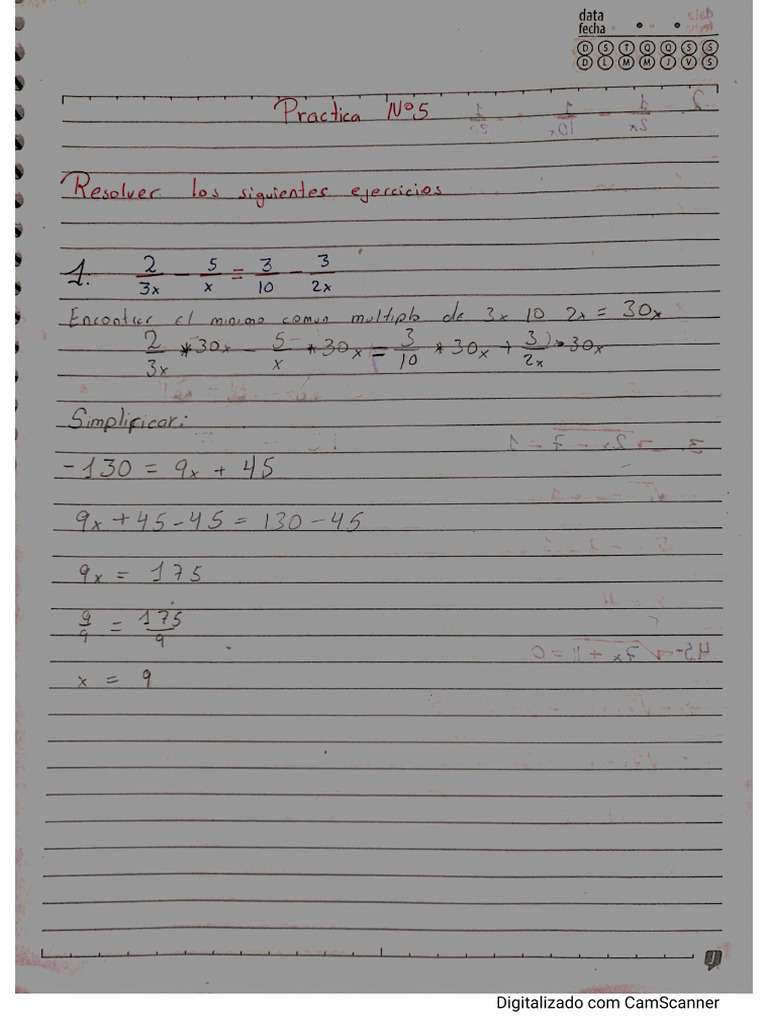 data
fecha
D S T Q Q S S
D L M M J V S
Practica Nº5
Resolver los siguientes ejercicios
1. 2/3x - 5/x = 3/10 - 3/2x
Encontrar el minimo comun multiplo de 3x 10 2x = 30x
2/3x * 30x - 5/x * 30x = 3/10 * 30x + 3/2x * 30x
Simplificar:
-130 = 9x + 45
9x + 45 - 45 = 130 - 45
9x = 175
9/9 = 175/9
x = 9
Digitalizado com CamScanner